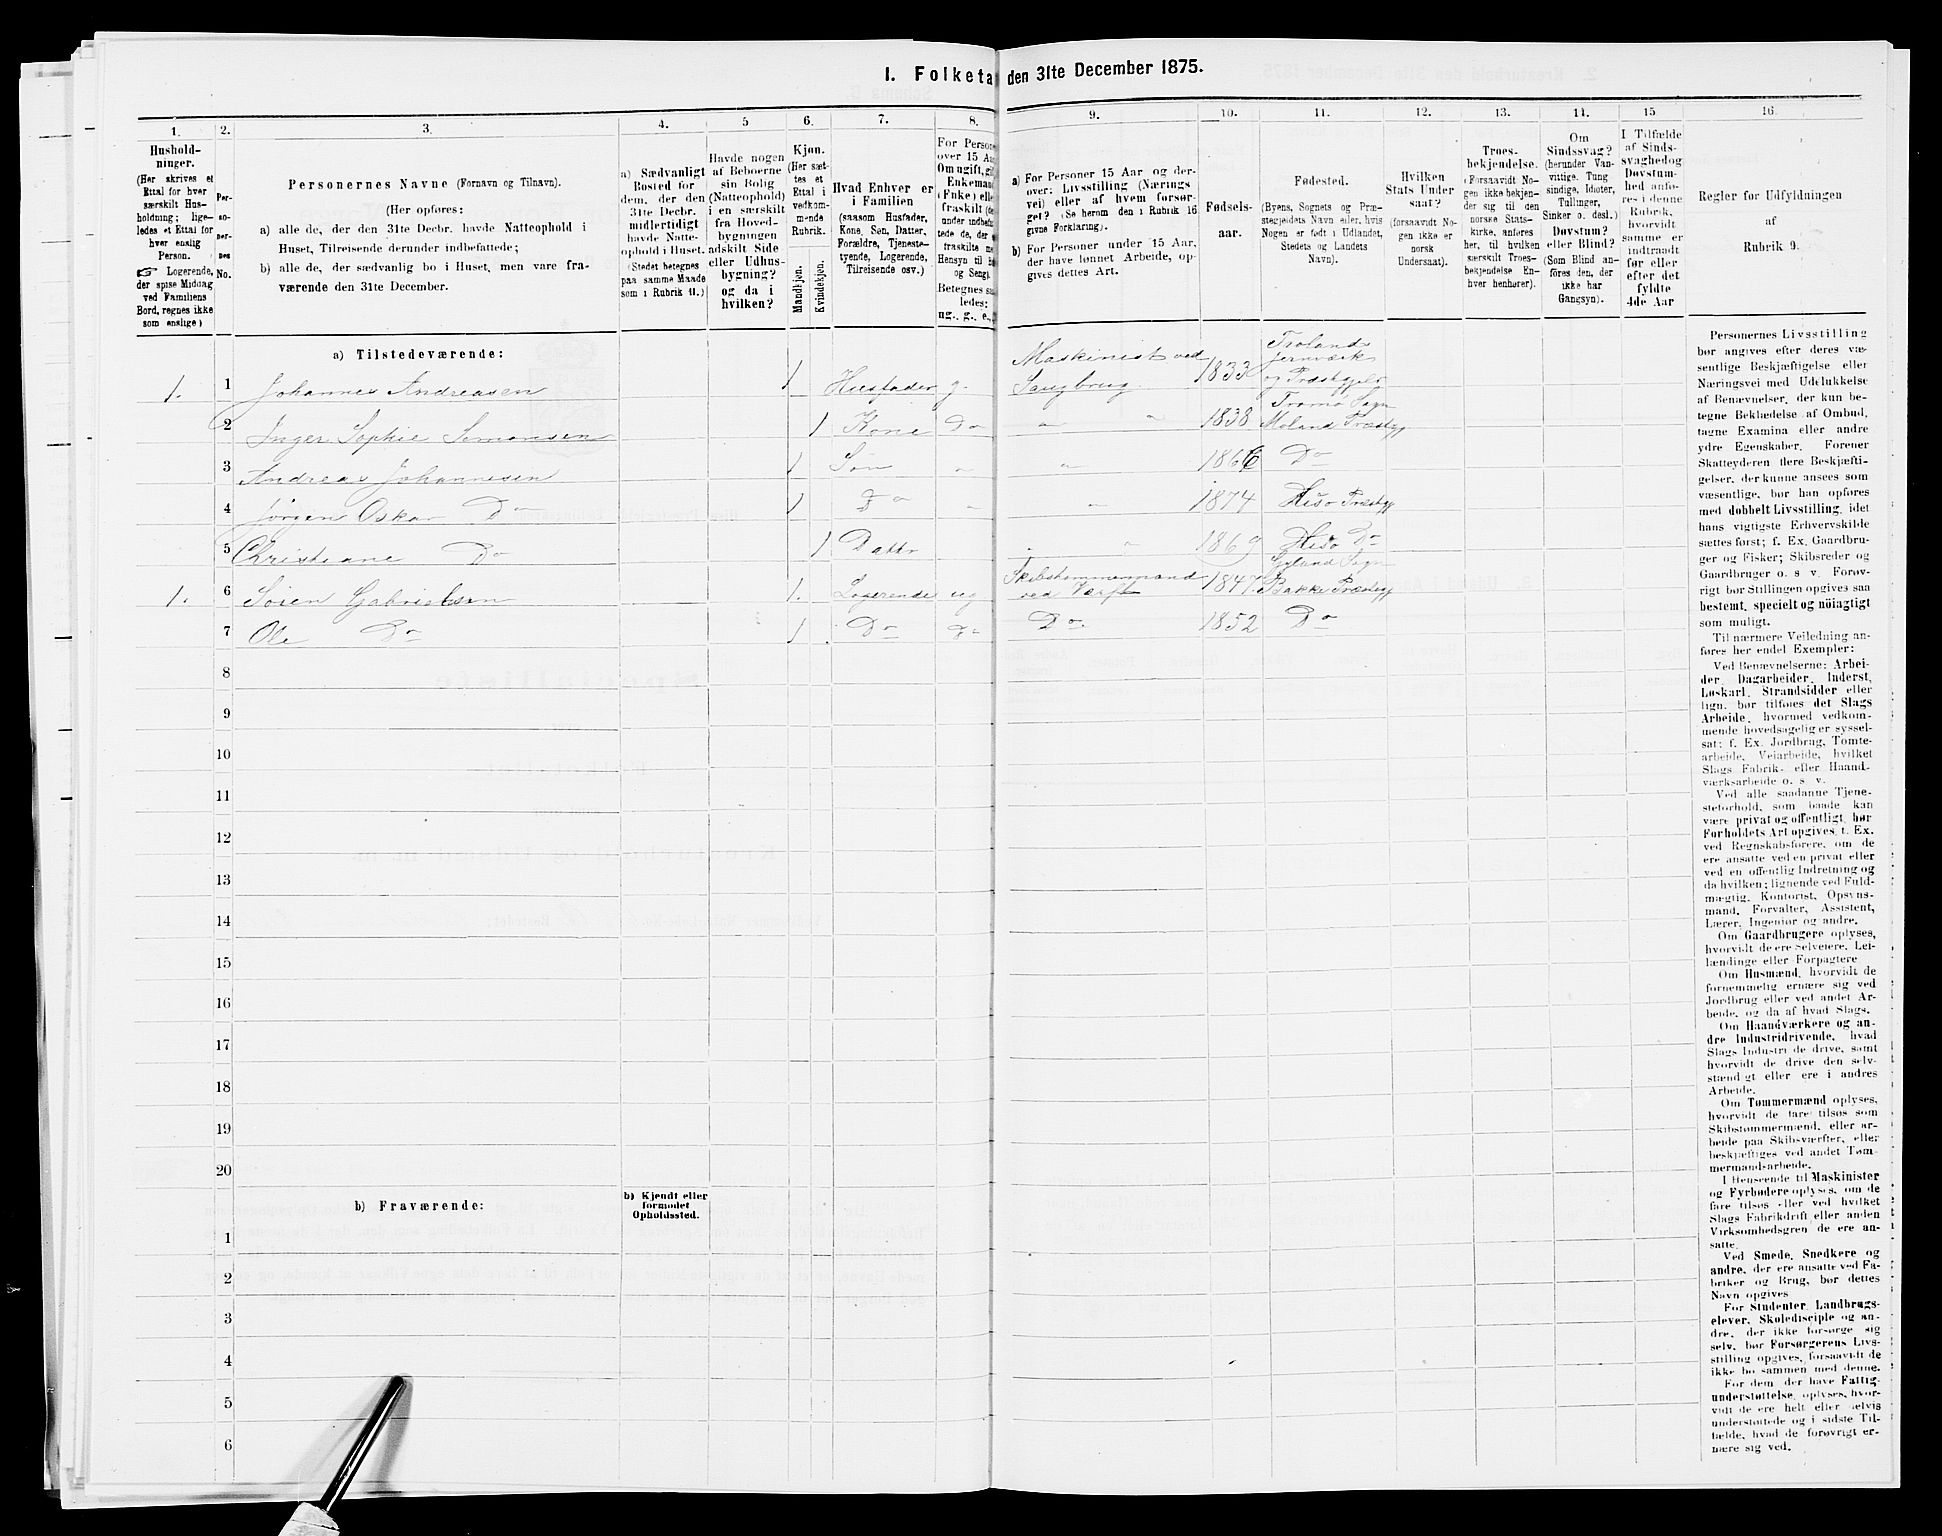 I. Folketæ den 31te December 1875.
1.
Hushold-
ninger.
(Her skrives et
Ettal for hver
særskilt Hus-
holdning; lige-
ledes et Ettal for
hver enslig
Person.
☞ Logerende,
der spise Middag
ved Familiens
Bord, regnes ikke
som enslige)
2.
Per-
so-
ner-
nes
No.
3.
Personernes Navne (Fornavn og Tilnavn).
(Her opføres:
a) alle de, der den 31te Decbr. havde Natteophold i
Huset, Tilreisende derunder indbefattede;
b) alle de, der sædvanlig bo i Huset, men vare fra-
værende den 31te December.
4.
a) Sædvanligt
Bosted for
dem, der den
31te Decbr.
midlertidigt
havde Natte-
ophold i Huset.
(Stedet betegnes
paa samme Maade
som i Rubrik 11.)
5
Havde nogen
af Beboerne
sin Bolig
(Natteophold)
i en særskilt
fra Hoved-
bygningen
adskilt Side
eller Udhus-
bygning?
og da i
hvilken?
6.
Kjøn.
(Her sæt-
tes et
Ettal i
vedkom-
mende
Rubrik.
Mandkjøn.
Kvindekjøn.
7.
Hvad Enhver er
i Familien
(saasom Husfader,
Kone, Søn, Datter,
Forældre, Tjeneste-
tyende, Logerende,
Tilreisende osv.)
8.
For Persone
over 15 Aa
Om ugift, gif
Enkemand
(Enke) eller
fraskilt (de
under indbefat-
tede de, der e
fraskilte m
Hensyn til B
og Seng).
Betegnes sa
ledes:
ug., g., e.,
9.
a) For Personer 15 Aar og der-
over: Livsstilling (Nærings
vei) eller af hvem forsør-
get? (Se herom den i Rubrik 16
givne Forklaring).
b) For Personer under 15 Aar,
der have lønnet Arbeide, op-
gives dettes Art.
10.
Fødsels-
aar.
11.
Fødested.
(Byens, Sognets og Præ-
stegjeldets Navn eller, hvis
Nogen er født i Udlandet,
Stedets og Landets
Navn).
12.
Hvilken
Stats Under
saat?
(forsaavidt No-
gen ikke er
norsk
Undersaat).
13.
Troes-
bekjendelse.
(Forsaavidt No-
gen ikke bekjen-
der sig til den
norske Stats-
kirke, anføres
her, til hvilken
særskilt Troes-
bekjendelse En-
hver henhører).
14.
Om
Sindssvag?
(herunder Van-
vittige, Tung
sindige, Idioter,
Tullinger,
Sinker o. desl.)
Døvstum?
eller Blind?
(Som Blind an-
føres den, der
ikke har
Gangsyn).
15
I Tilfælde
af Sinds-
svaghed og
Døvstum-
hed anfø-
res i denne
Rubrik,
hvorvidt
samme er
indtraadt
før eller
efter det
fyldte
4de Aar
16.
Regler for Udfyldningen
af
Rubrik 9.
a) Tilstedeværende:
1. 1 Johannes Andreasen 1 Husfader g. Maskinist ved Saugbrug. 1833 Froland Jernværk og Præstgjeld
2 Inger Sophie Simonsen 1 Kone Do " " 1838 Tromø Sogn Moland Præstgj
3 Andreas Johannesen 1 Søn " " 1866 Do
4 Jørgen Oskar Do 1 Do " " 1874 Hisø Præstgj
5 Christiane Do 1 Dattr " " 1869 Hisø Do
1. 6 Søren Gabrielsen 1. Logerende ug Skibstømmermand ved Værft 1847. Gyland Sogn Bakke Præstegj
7 Ole Do 1 Do Do Do. 1852 Do
8
9
10
11
12
13
14
15
16
17
18
19
20
b) Fraværende:
b) Kjendt eller
formodet
Opholdssted.
1
2
3
4
5
6
Personernes Livsstilling
bør angives efter deres væ-
sentlige Beskjæftigelse eller
Næringsvei med Udelukkelse
af Benævnelser, der kun be-
tegne Beklædelse af Ombud,
tagne Examina eller andre
ydre Egenskaber. Forener
Skatteyderen flere Beskjæfti-
gelser, der kunne ansees som
væsentlige, bør han opføres
med dobbelt Livsstilling, idet
hans vigtigste Erhvervskilde
sættes først; f. Ex. Gaardbru-
ger og Fisker; Skibsreder og
Gaardbruger o. s v. Forøv-
rigt bør Stillingen opgives saa
bestemt, specielt og nöiagtigt
som muligt.
Til nærmere Veiledning an-
føres her endel Exempler:
Ved Benævnelserne: Arbei-
der, Dagarbeider, Inderst,
Løskarl, Strandsidder eller
lign. bør tilføies det Slags
Arbeide, hvormed vedkom-
mende hovedsagelig er syssel-
sat; f. Ex. Jordbrug, Tomte-
arbeide, Veiarbeide, hvilket
Slags Fabrik- eller Haand-
værksarbeide o. s v.
Ved alle saadanne Tjene-
steforhold, som baade kan
være privat og offentligt, bør
Forholdets Art opgives, t. Ex.
ved Regnskabsførere, om de
ere ansatte ved en privat eller
ved en offentlig Indretning og
da hvilken; lignende ved Fuld-
mægtig, Kontorist, Opsyns-
mand, Forvalter, Assistent,
Lærer, Ingeniør og andre.
Om Gaardbrugere oplyses,
hvorvidt de ere Selveiere, Lei-
lændinge eller Forpagtere
Om Husmænd, hvorvidt de
fornemmelig ernære sig ved
Jordbrug eller ved andet Ar-
beide, og da af hvad Slags.
Om Haandværkere og an-
dre Industridrivende, hvad
Slags Industri de drive, samt
hvorvidt de drive den selv-
stændigt eller ere i andres
Arbeide.
Om Tømmermænd oplyses,
hvorvidt de fare tilsøs som
Skibstømmermænd, eller ar-
beide paa Skibsværfter, eller
beskjæftiges ved andet Tøm-
mermandsarbeide.
I Henseende til Maskinister
og Fyrbødere oplyses, om de
fare tilsøs eller ved hvilket
Slags Fabrikdrift eller anden
Virksomhedsgren de ere an-
satte.
Ved Smede, Snedkere og
andre, der ere ansatte ved Fa-
briker og Brug, bør dettes
Navn opgives
For Studenter, Landbrugs-
elever, Skoledisciple og an-
dre, der ikke forsørge sig
selv, bør Forsørgerens Livs-
stilling opgives, forsaavidt de
ikke bo sammen med denne.
For dem, der have Fattig-
understøttelse, oplyses, hvor-
vidt de ere helt eller delvis
understøttede og i sidste Til-
fælde, hvad de forøvrigt er-
nære sig ved.